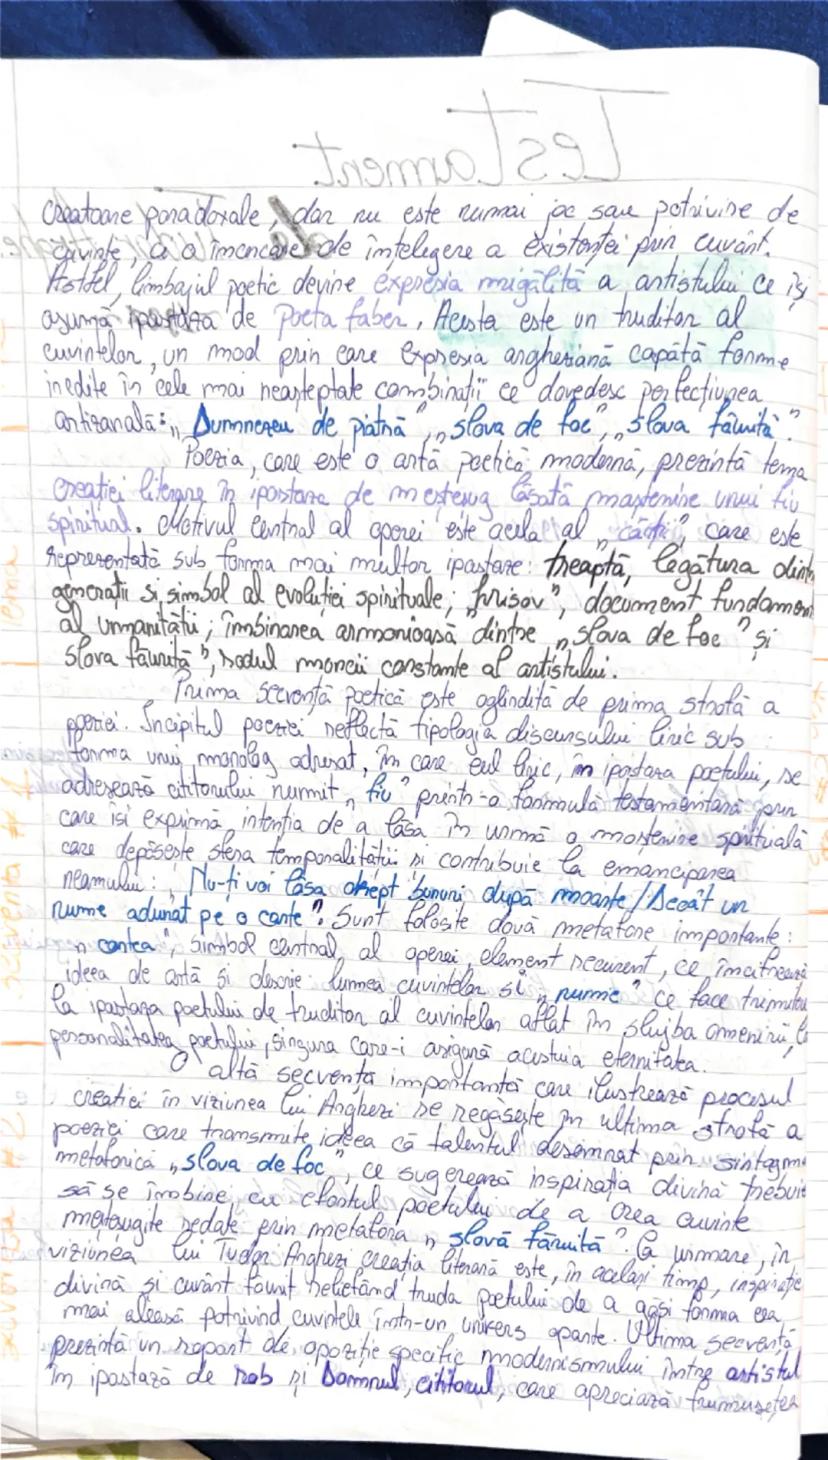 Testament
creatoare paradoxale, dar nu este numai joc sau potrivire de
cuvinte, ci o încercare de înțelegere a existenței prin cuvânt.
Astfel, limbajul poetic devine expresia migălită a artistului ce își
asumă ipostaza de poeta faber. Acesta este un truditor al
cuvintelor, un mod prin care expresia argheziană capătă forme
inedite în cele mai neașteptate combinații ce dovedesc perfecțiunea
artizanală: „Dumnezeu de piatră”, „slova de foc”, „slova făurită”.
Poezia, care este o artă poetică modernă, prezintă tema
creației literare în ipostaza de meșteșug lăsată moștenire unui fiu
spiritual. Motivul central al operei este acela al „cărții” care este
reprezentată sub forma mai multor ipostaze: treaptă, legătura dintre
generații și simbol al evoluției spirituale; „hrisov”, document fundamen
al urmanității; îmbinarea armonioasă dintre „slova de foc” și
slova făurită”, rodul muncii constante al artistului.
Prima secvență poetică este oglindită de prima strofă a
poeziei. Incipitul poeziei reflectă tipologia discursului liric sub
forma unui monolog adresat, în care eul liric, în ipostaza poetului, se
adresează cititorului numit „fiu” printr-o formulă testamentară prin
care își exprimă intenția de a lăsa în urmă o moștenire spirituală
care depășește sfera temporalității și contribuie la emanciparea
neamului: „Nu-ți voi lăsa drept bunuri după moarte/Decât un
nume adunat pe o carte”. Sunt folosite două metafore importante:
„cartea”, simbol central al operei element recurent, ce încifrează
ideea de artă și descrie lumea cuvintelor și „nume” ce face trimitere
la ipostaza poetului de truditor al cuvintelor aflat în slujba omenirii, la
personalitatea poetului, singura care-i asigură acestuia eternitatea.
O altă secvență importantă care ilustrează procesul
creației în viziunea lui Arghezi se regăsește în ultima strofă a
poeziei care transmite ideea că talentul desemnat prin sintagma
metaforică „slova de foc”, ce sugerează inspirația divină trebuie
să se îmbine cu efortul poetului de a crea cuvinte
meșteșugite redate prin metafora „slovă făurită”. Ca urmare, în
viziunea lui Tudor Arghezi creația literară este, în același timp, inspirație
divină și cuvânt făurit reliefând truda poetului de a găsi forma cea
mai aleasă potrivind cuvintele într-un univers aparte. Ultima secvență
prezintă un raport de opoziție specific modernismului între artistul
în ipostază de rob și Domnul, cititorul, care apreciază frumusețea